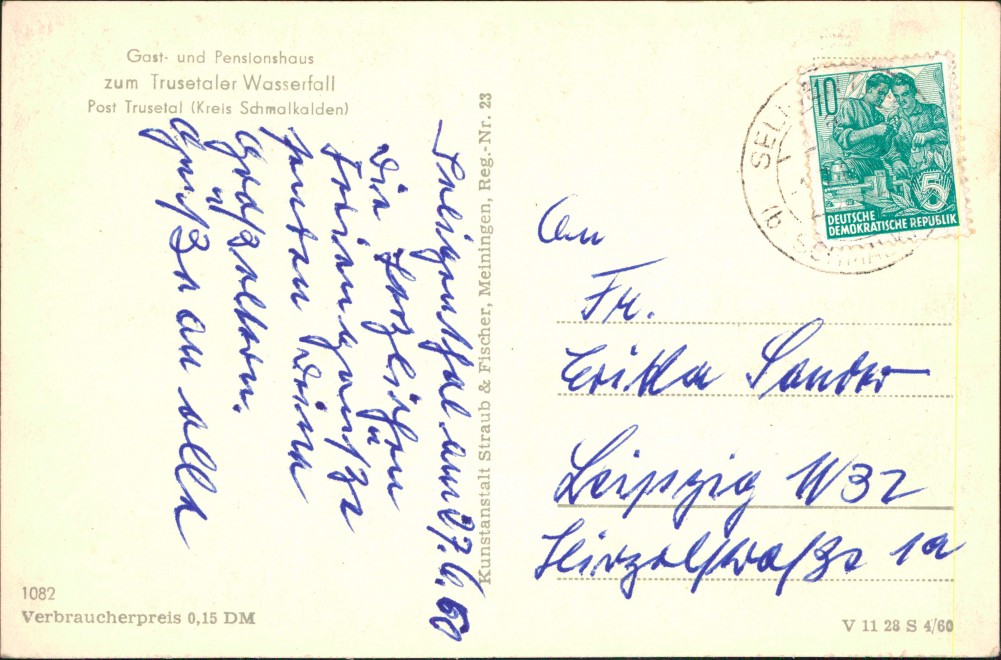 Gast- und Pensionshaus
zum Trusetaler Wasserfall
Post Trusetal (Kreis Schmalkalden)
Seligenthal, am 27.6.60
Die herzlichsten
Feriengrüße
senden Deine
Großeltern.
Grüße an alle
Kunstanstalt Straub & Fischer, Meiningen, Reg.-Nr. 23
10
5
DEUTSCHE
DEMOKRATISCHE REPUBLIK
An
Fr.
Erikka Sander
Leipzig W32
Hirzelstraße 1a
1082
Verbraucherpreis 0,15 DM
V 11 28 S 4/60